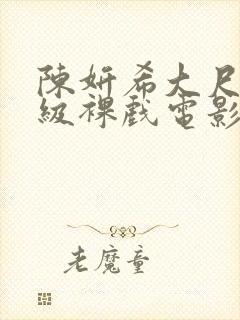 陳妍希大尺
級裸戲電影
老魔童